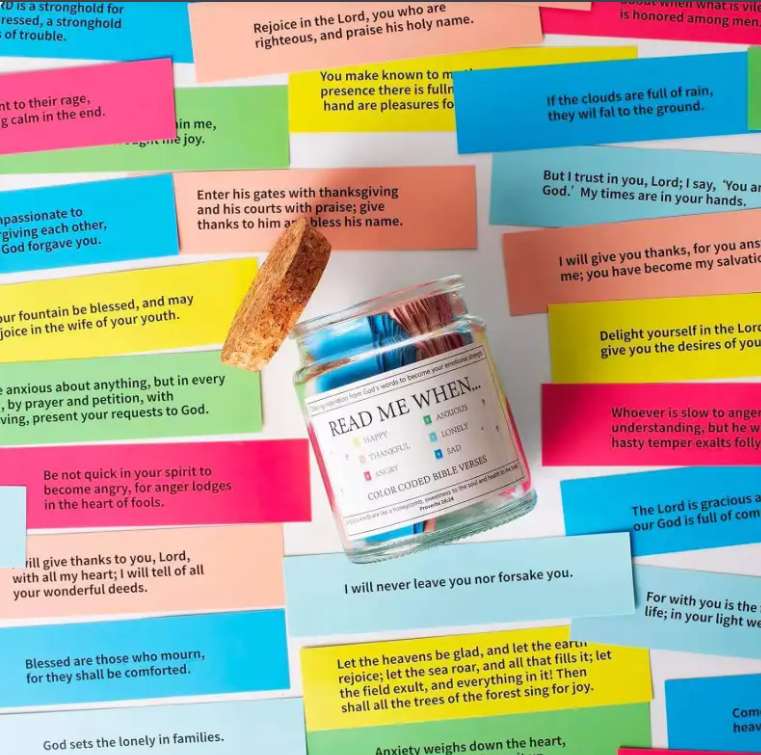 RD is a stronghold for
ressed, a stronghold
s of trouble.
Rejoice in the Lord, you who are
righteous, and praise his holy name.
when what is vile
is honored among men.
You make known to m
presence there is fulln
hand are pleasures fo
If the clouds are full of rain,
they wil fal to the ground.
nt to their rage,
g calm in the end.
in me,
me joy.
But I trust in you, Lord; I say, ‘You ar
God.’ My times are in your hands.
Enter his gates with thanksgiving
and his courts with praise; give
thanks to him and bless his name.
mpassionate to
rgiving each other,
God forgave you.
I will give you thanks, for you ans
me; you have become my salvatio
our fountain be blessed, and may
joice in the wife of your youth.
Delight yourself in the Lord
give you the desires of you
e anxious about anything, but in every
, by prayer and petition, with
ving, present your requests to God.
from God's words to become your emotional strength
READ ME WHEN...
HAPPY
THANKFUL
ANGRY
ANXIOUS
LONELY
SAD
COLOR CODED BIBLE VERSES
are like a honeycomb, sweetness to the soul and health to the body
Proverbs 16:24
Whoever is slow to anger
understanding, but he w
hasty temper exalts folly
Be not quick in your spirit to
become angry, for anger lodges
in the heart of fools.
The Lord is gracious a
our God is full of com
will give thanks to you, Lord,
with all my heart; I will tell of all
your wonderful deeds.
I will never leave you nor forsake you.
For with you is the
life; in your light we
Blessed are those who mourn,
for they shall be comforted.
Let the heavens be glad, and let the earth
rejoice; let the sea roar, and all that fills it; let
the field exult, and everything in it! Then
shall all the trees of the forest sing for joy.
God sets the lonely in families.
Anxiety weighs down the heart,
Com
heav